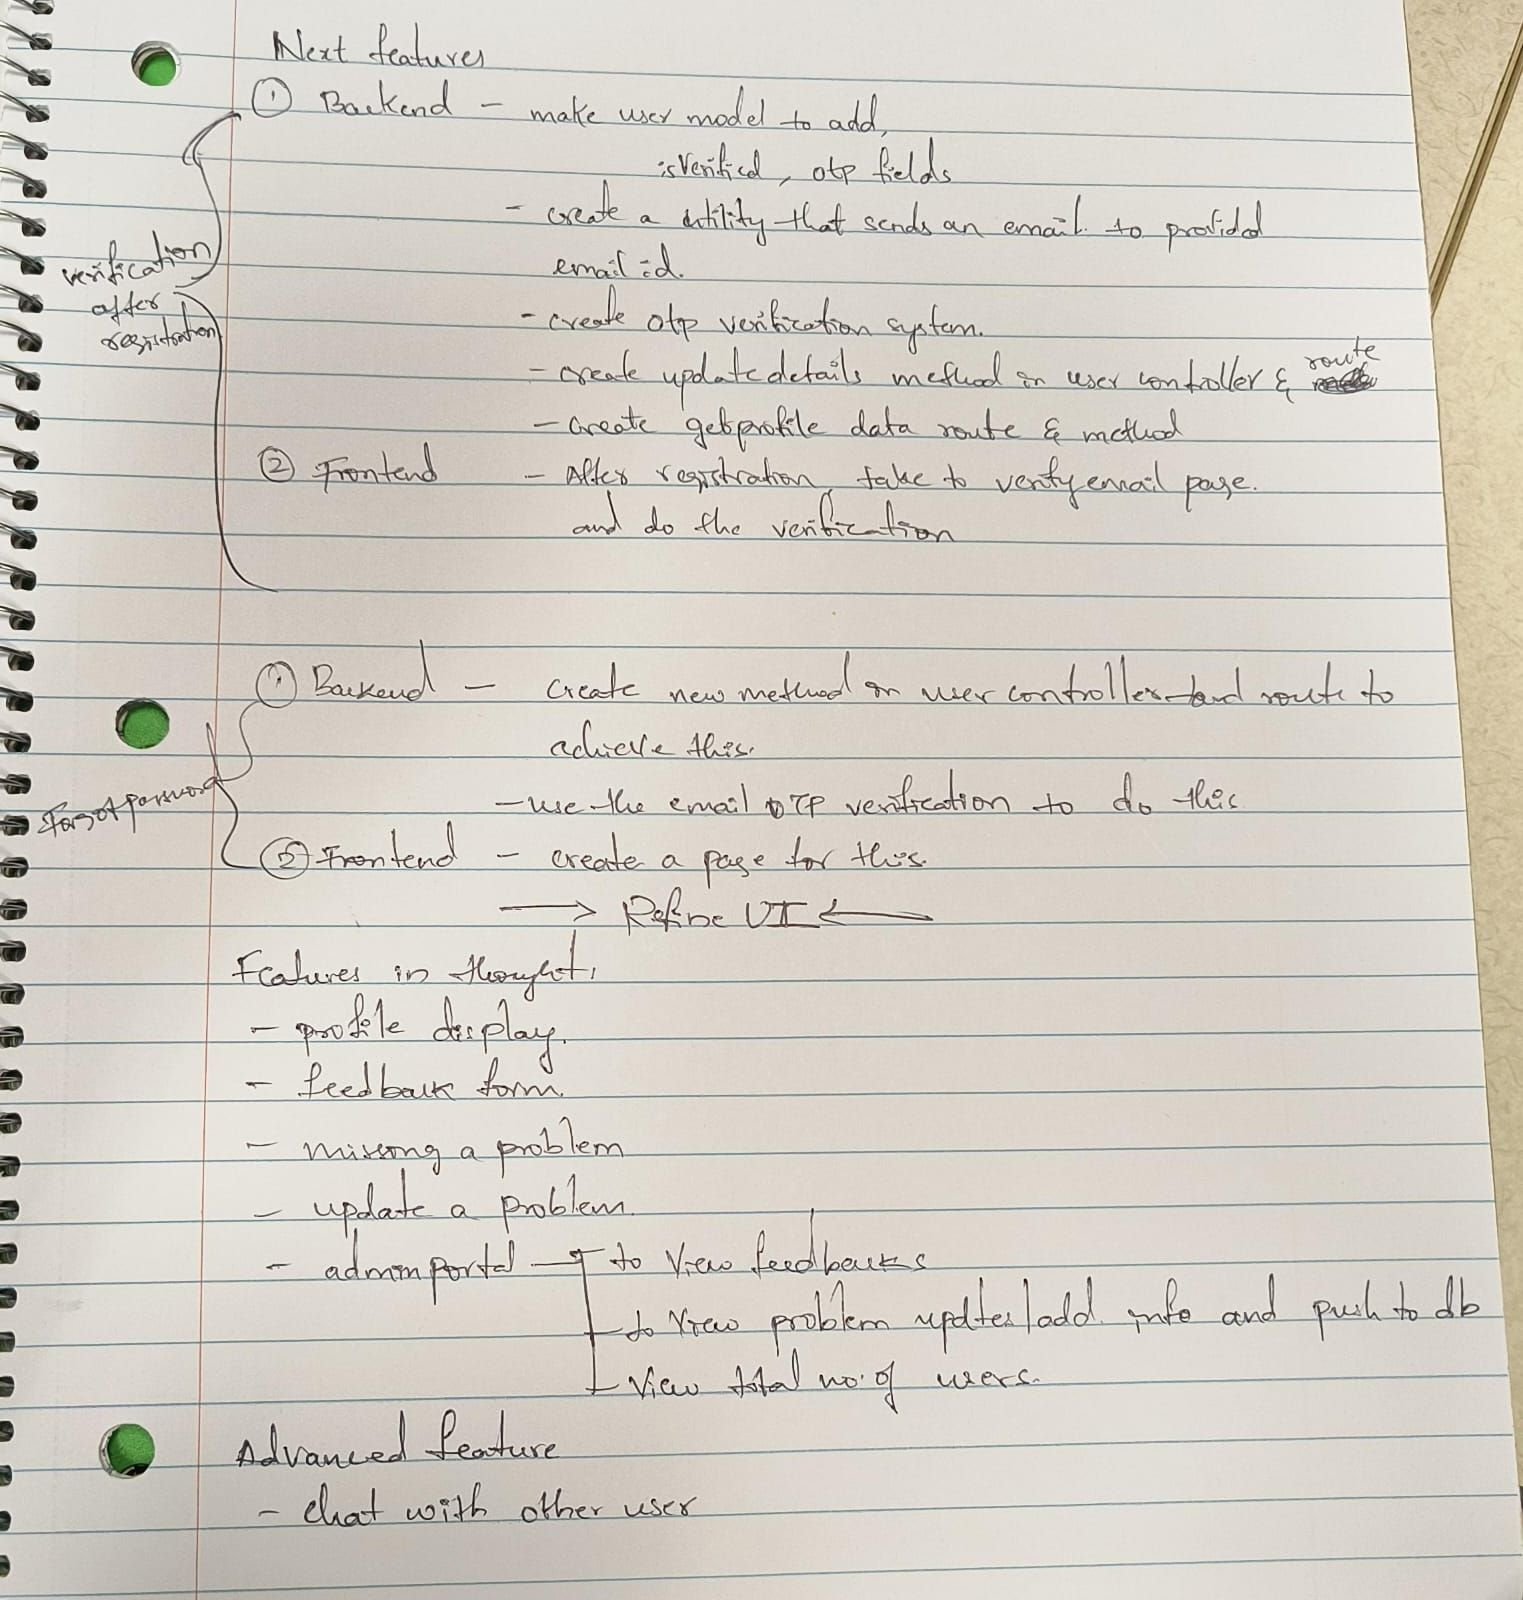 Next features
① Backend - make user model to add,
isVerified, otp fields
- create a utility that sends an email to provided
email id.
verification
after
registration
- create otp verification system.
- create updatedetails method in user controller & route
- create getprofile data route & method
② Frontend - After registration, take to verifyemail page.
and do the verification
① Backend - create new method in user controller and route to
achieve this.
- use the email OTP verification to do this
Forgot password
② Frontend - create a page for this.
→ Refine UI ←
Features in thought,
- profile display.
- feedback form.
- missing a problem
- update a problem.
- admin portal - to View feedbacks
- to View problem updtes/add info and push to db
- View total no. of users.
Advanced feature
- chat with other user